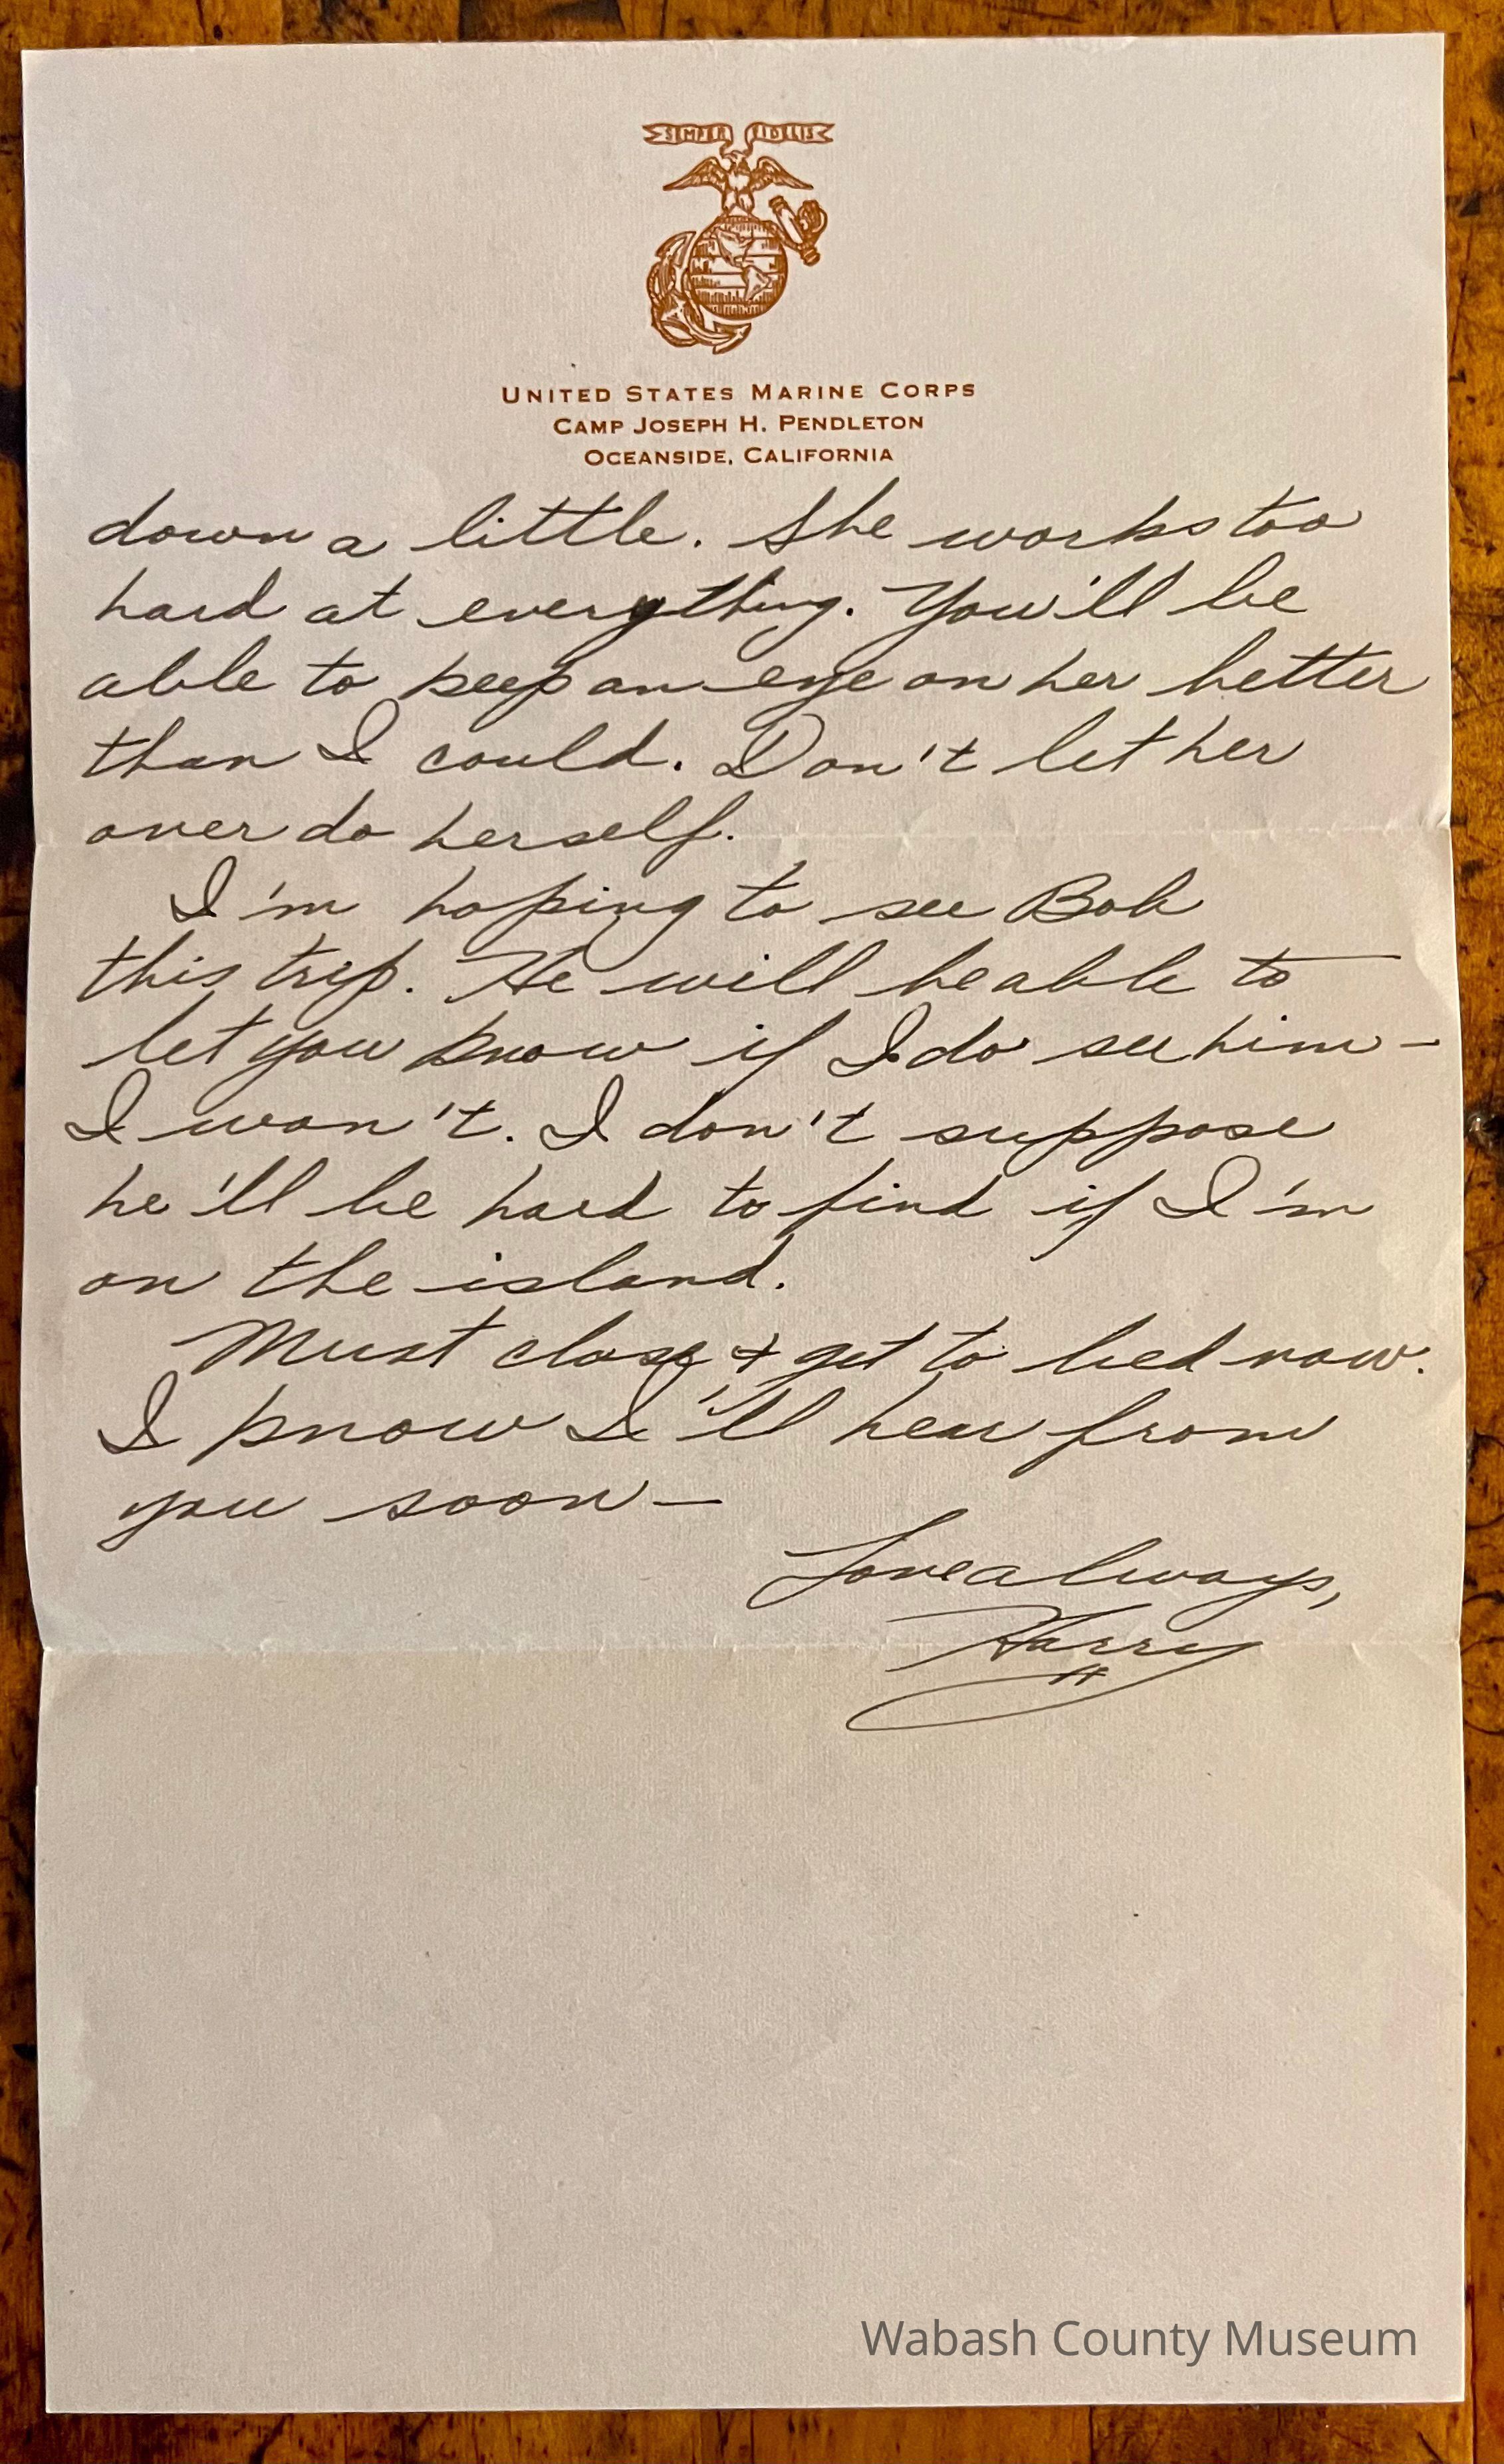 SEMPER FIDELIS
UNITED STATES MARINE CORPS
CAMP JOSEPH H. PENDLETON
OCEANSIDE, CALIFORNIA
down a little. She works too
hard at everything. You'll be
able to keep an eye on her better
than I could. Don't let her
over do herself.
I'm hoping to see Bob
this trip. He will be able to
let you know if I do see him -
I won't. I don't suppose
he'll be hard to find if I'm
on the island.
Must close + get to bed now.
I know I'll hear from
you soon -
Love always,
Harry
Wabash County Museum